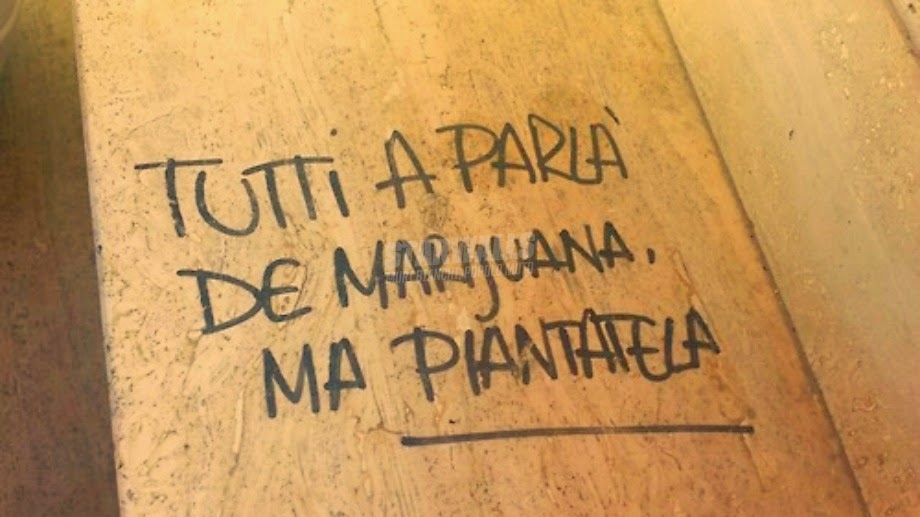 TUTTi A PARLÀ
DE MARIJUANA.
MA PIANTATELA